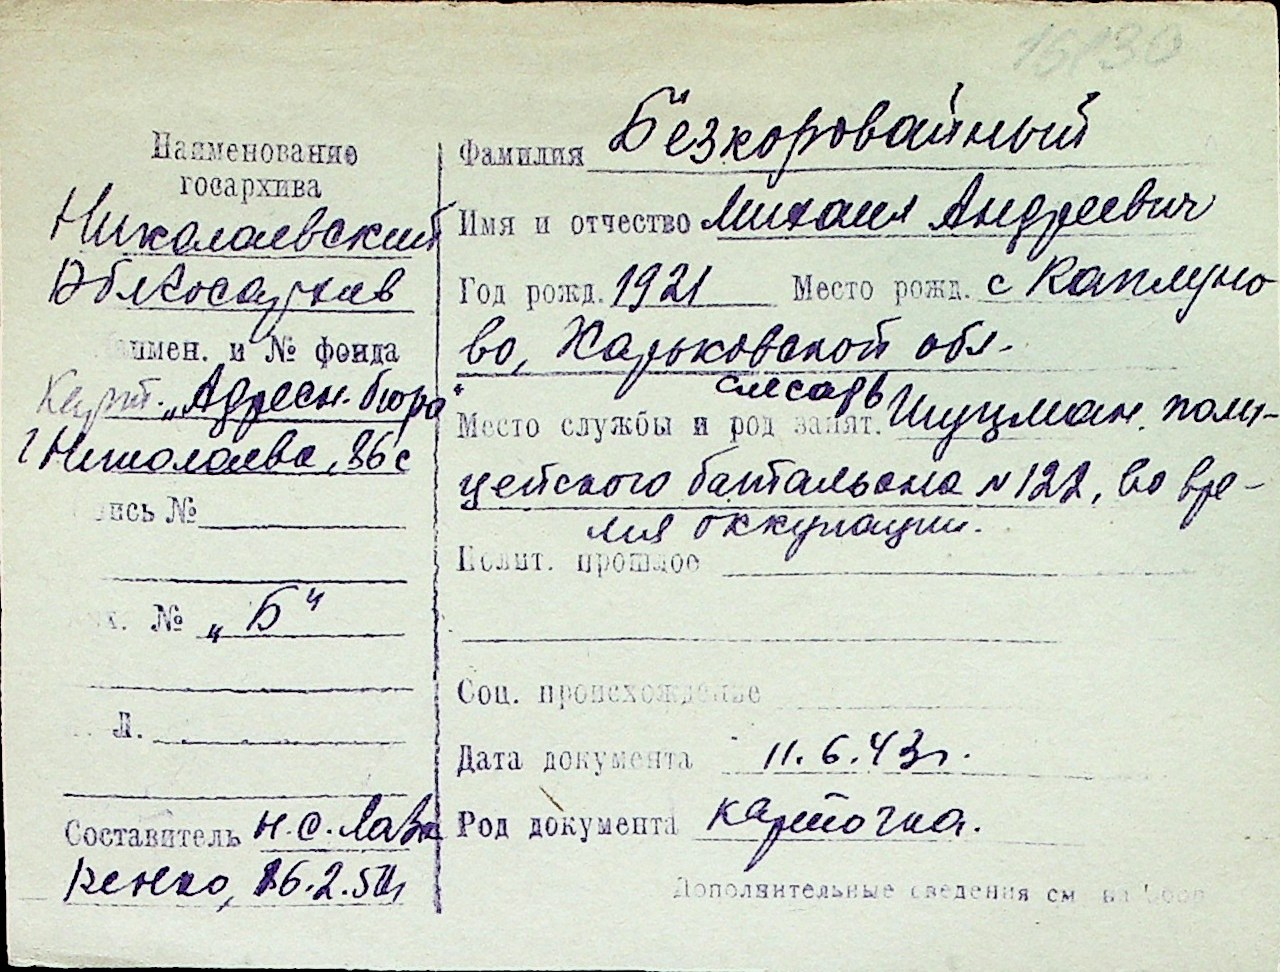 15130
Наименование
госархива
Николаевский
Облгосархив
Наимен. и № фонда
Карт. „Адресн. бюро"
г Николаева, 86 с
Опись №
№ „Б"
Л.
Составитель Н.С. Лав
кенко, 26.2.51г
Фамилия Безкоровайный
Имя и отчество Михаил Андреевич
Год рожд. 1921 Место рожд. с Каплуно
во, Харьковской обл.
слесарь
Место службы и род занят. Шуцман. поли-
цейского батальона № 122, во вре-
мя оккупации.
Полит. прошлое
Соц. происхождение
Дата документа 11.6.43г.
Род документа карточка.
Дополнительные сведения см на обор